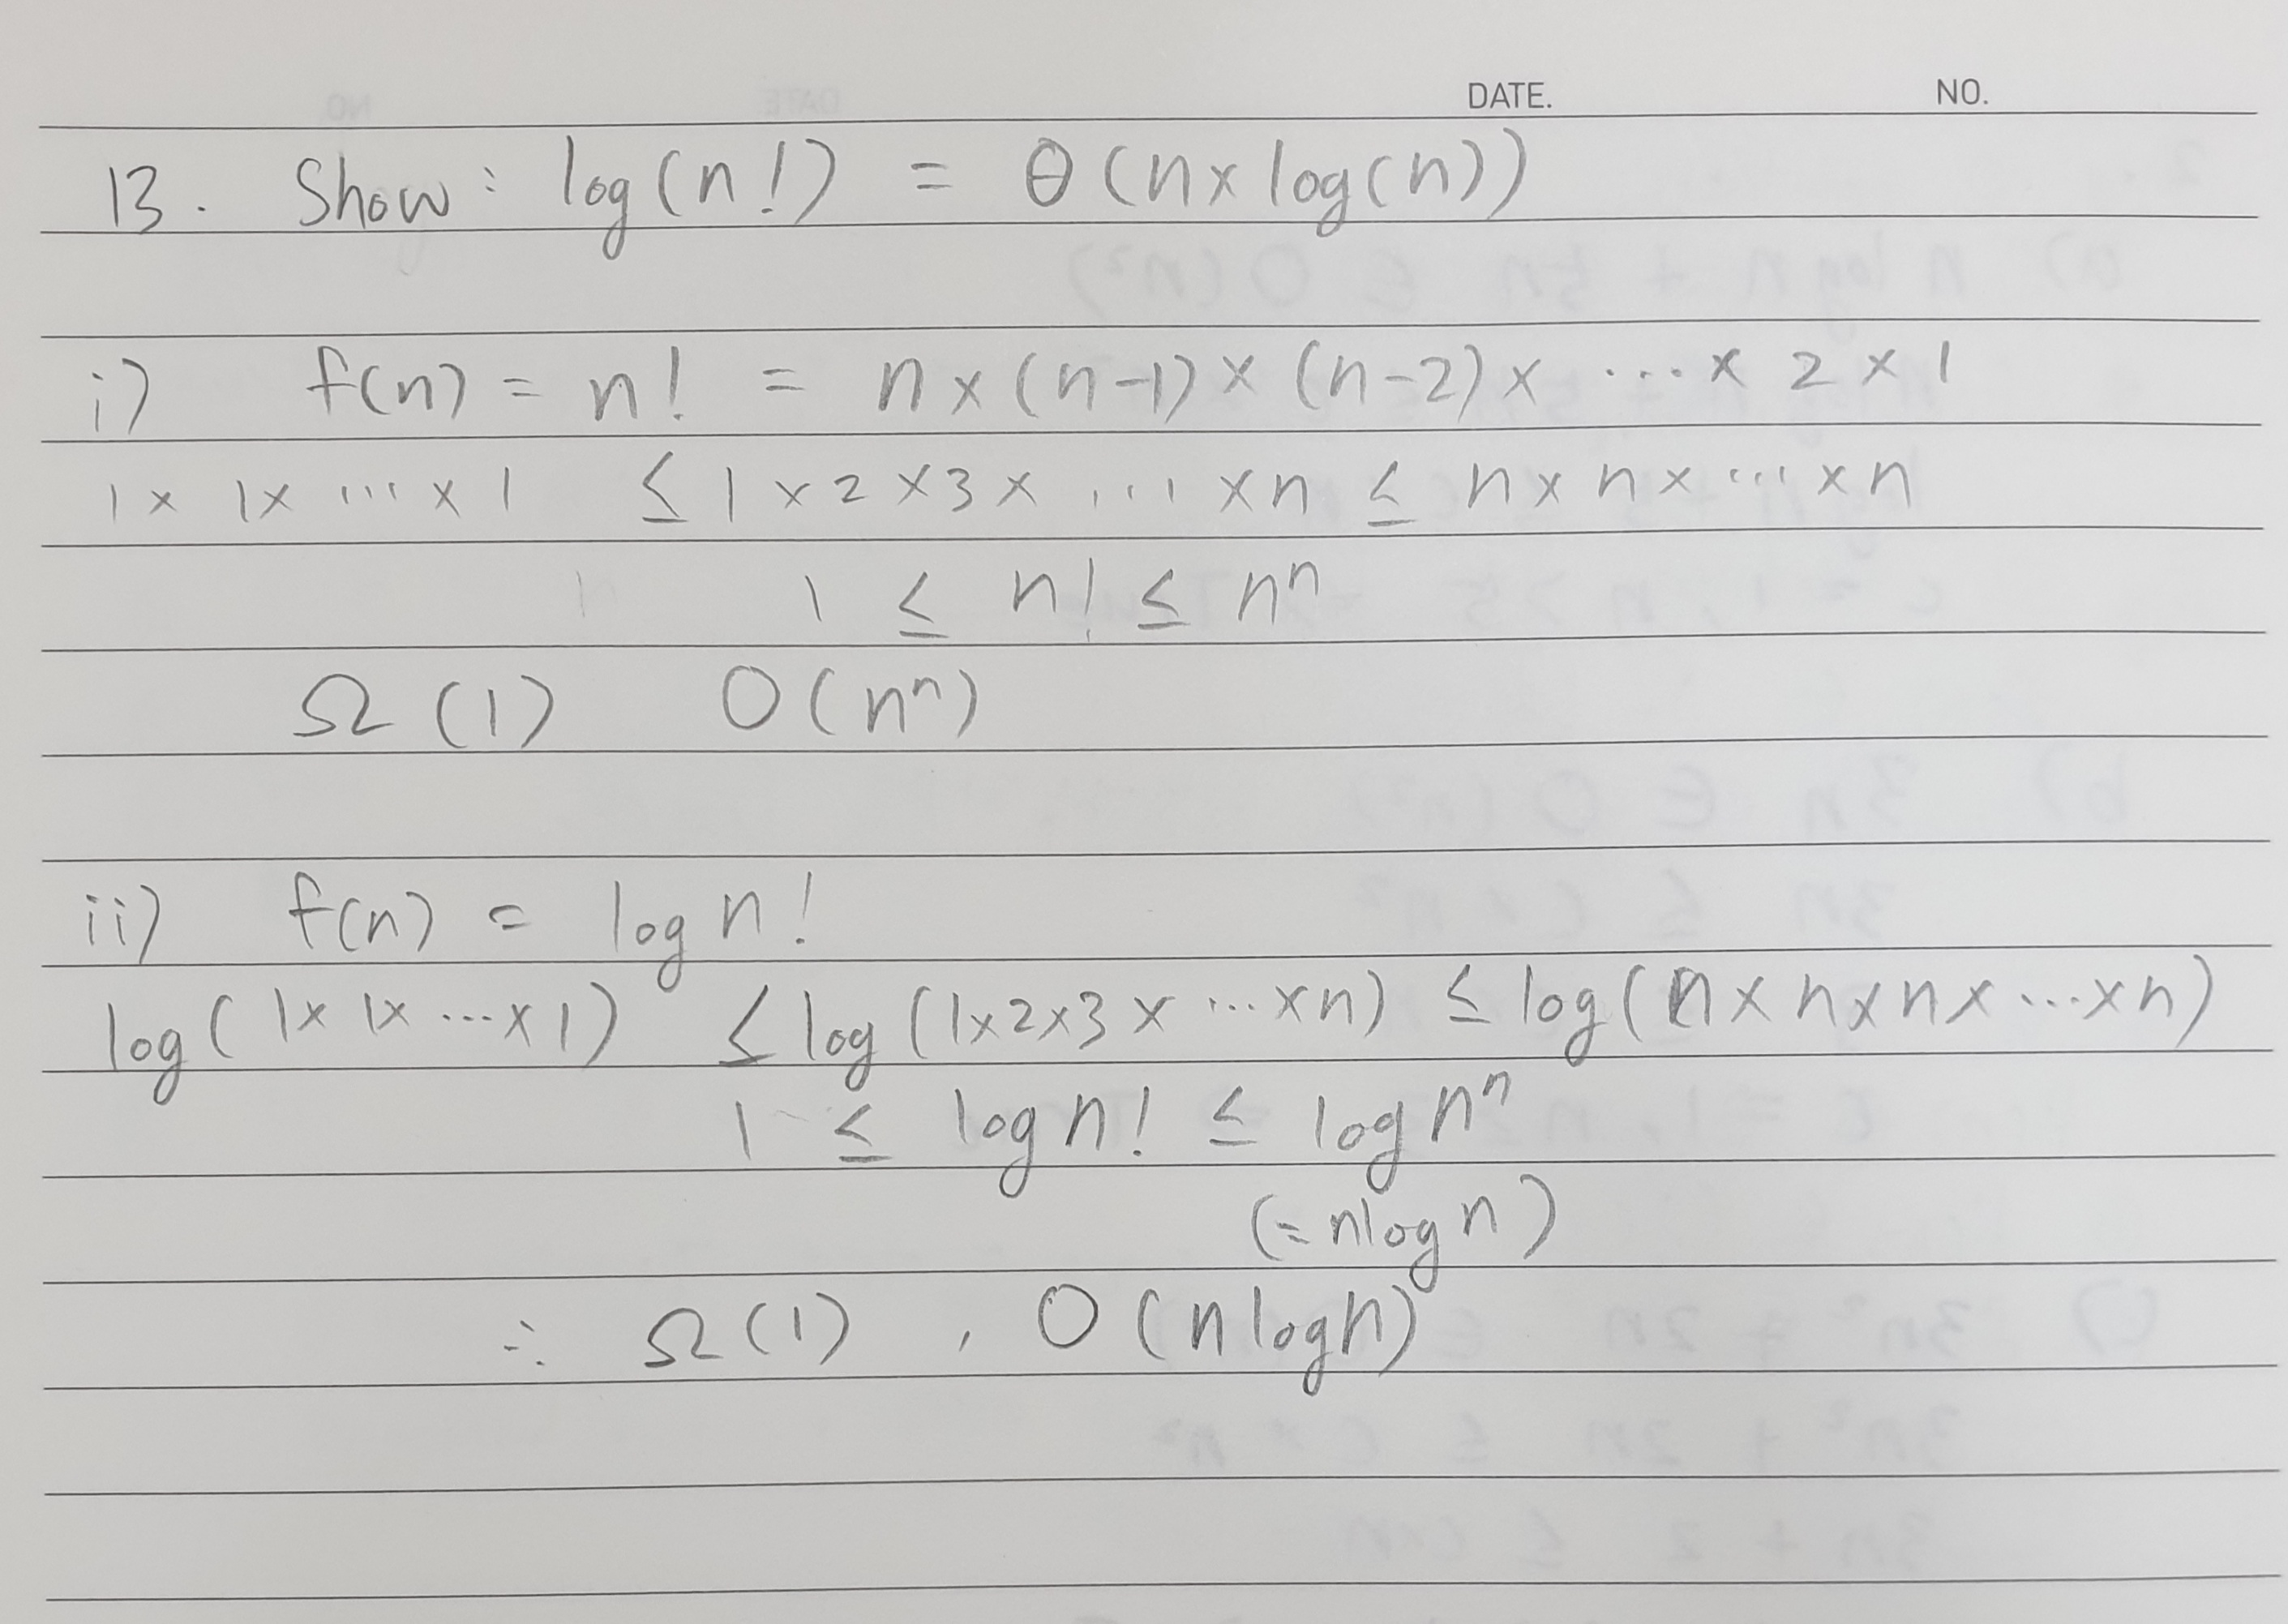 DATE. NO.
13. Show: log(n!) = θ(n×log(n))
i) f(n) = n! = n×(n-1)×(n-2)× ...× 2 × 1
1× 1× ... × 1 ≤ 1 × 2 ×3× ... ×n ≤ n× n× ... ×n
1 ≤ n! ≤ nⁿ
Ω(1) O(nⁿ)
ii) f(n) = log n!
log( 1× 1× ...×1) ≤ log (1×2×3 × ...×n) ≤ log( n×n×n× ...×n)
1 ≤ log n! ≤ log nⁿ
(= nlog n)
∴ Ω(1) , O(nlogn)